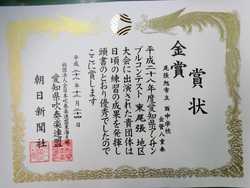 賞状
金賞
尾張旭市立西中学校
金管八重奏
平成二十八年度愛知県アンサン
ブルコンテスト東尾張地区
大会に出演された貴団体は
日頃の練習の成果を発揮し
頭書のとおり優秀でしたので
ここに賞します
平成二十八年十二月二十
愛知県吹奏楽連盟
朝日新聞社